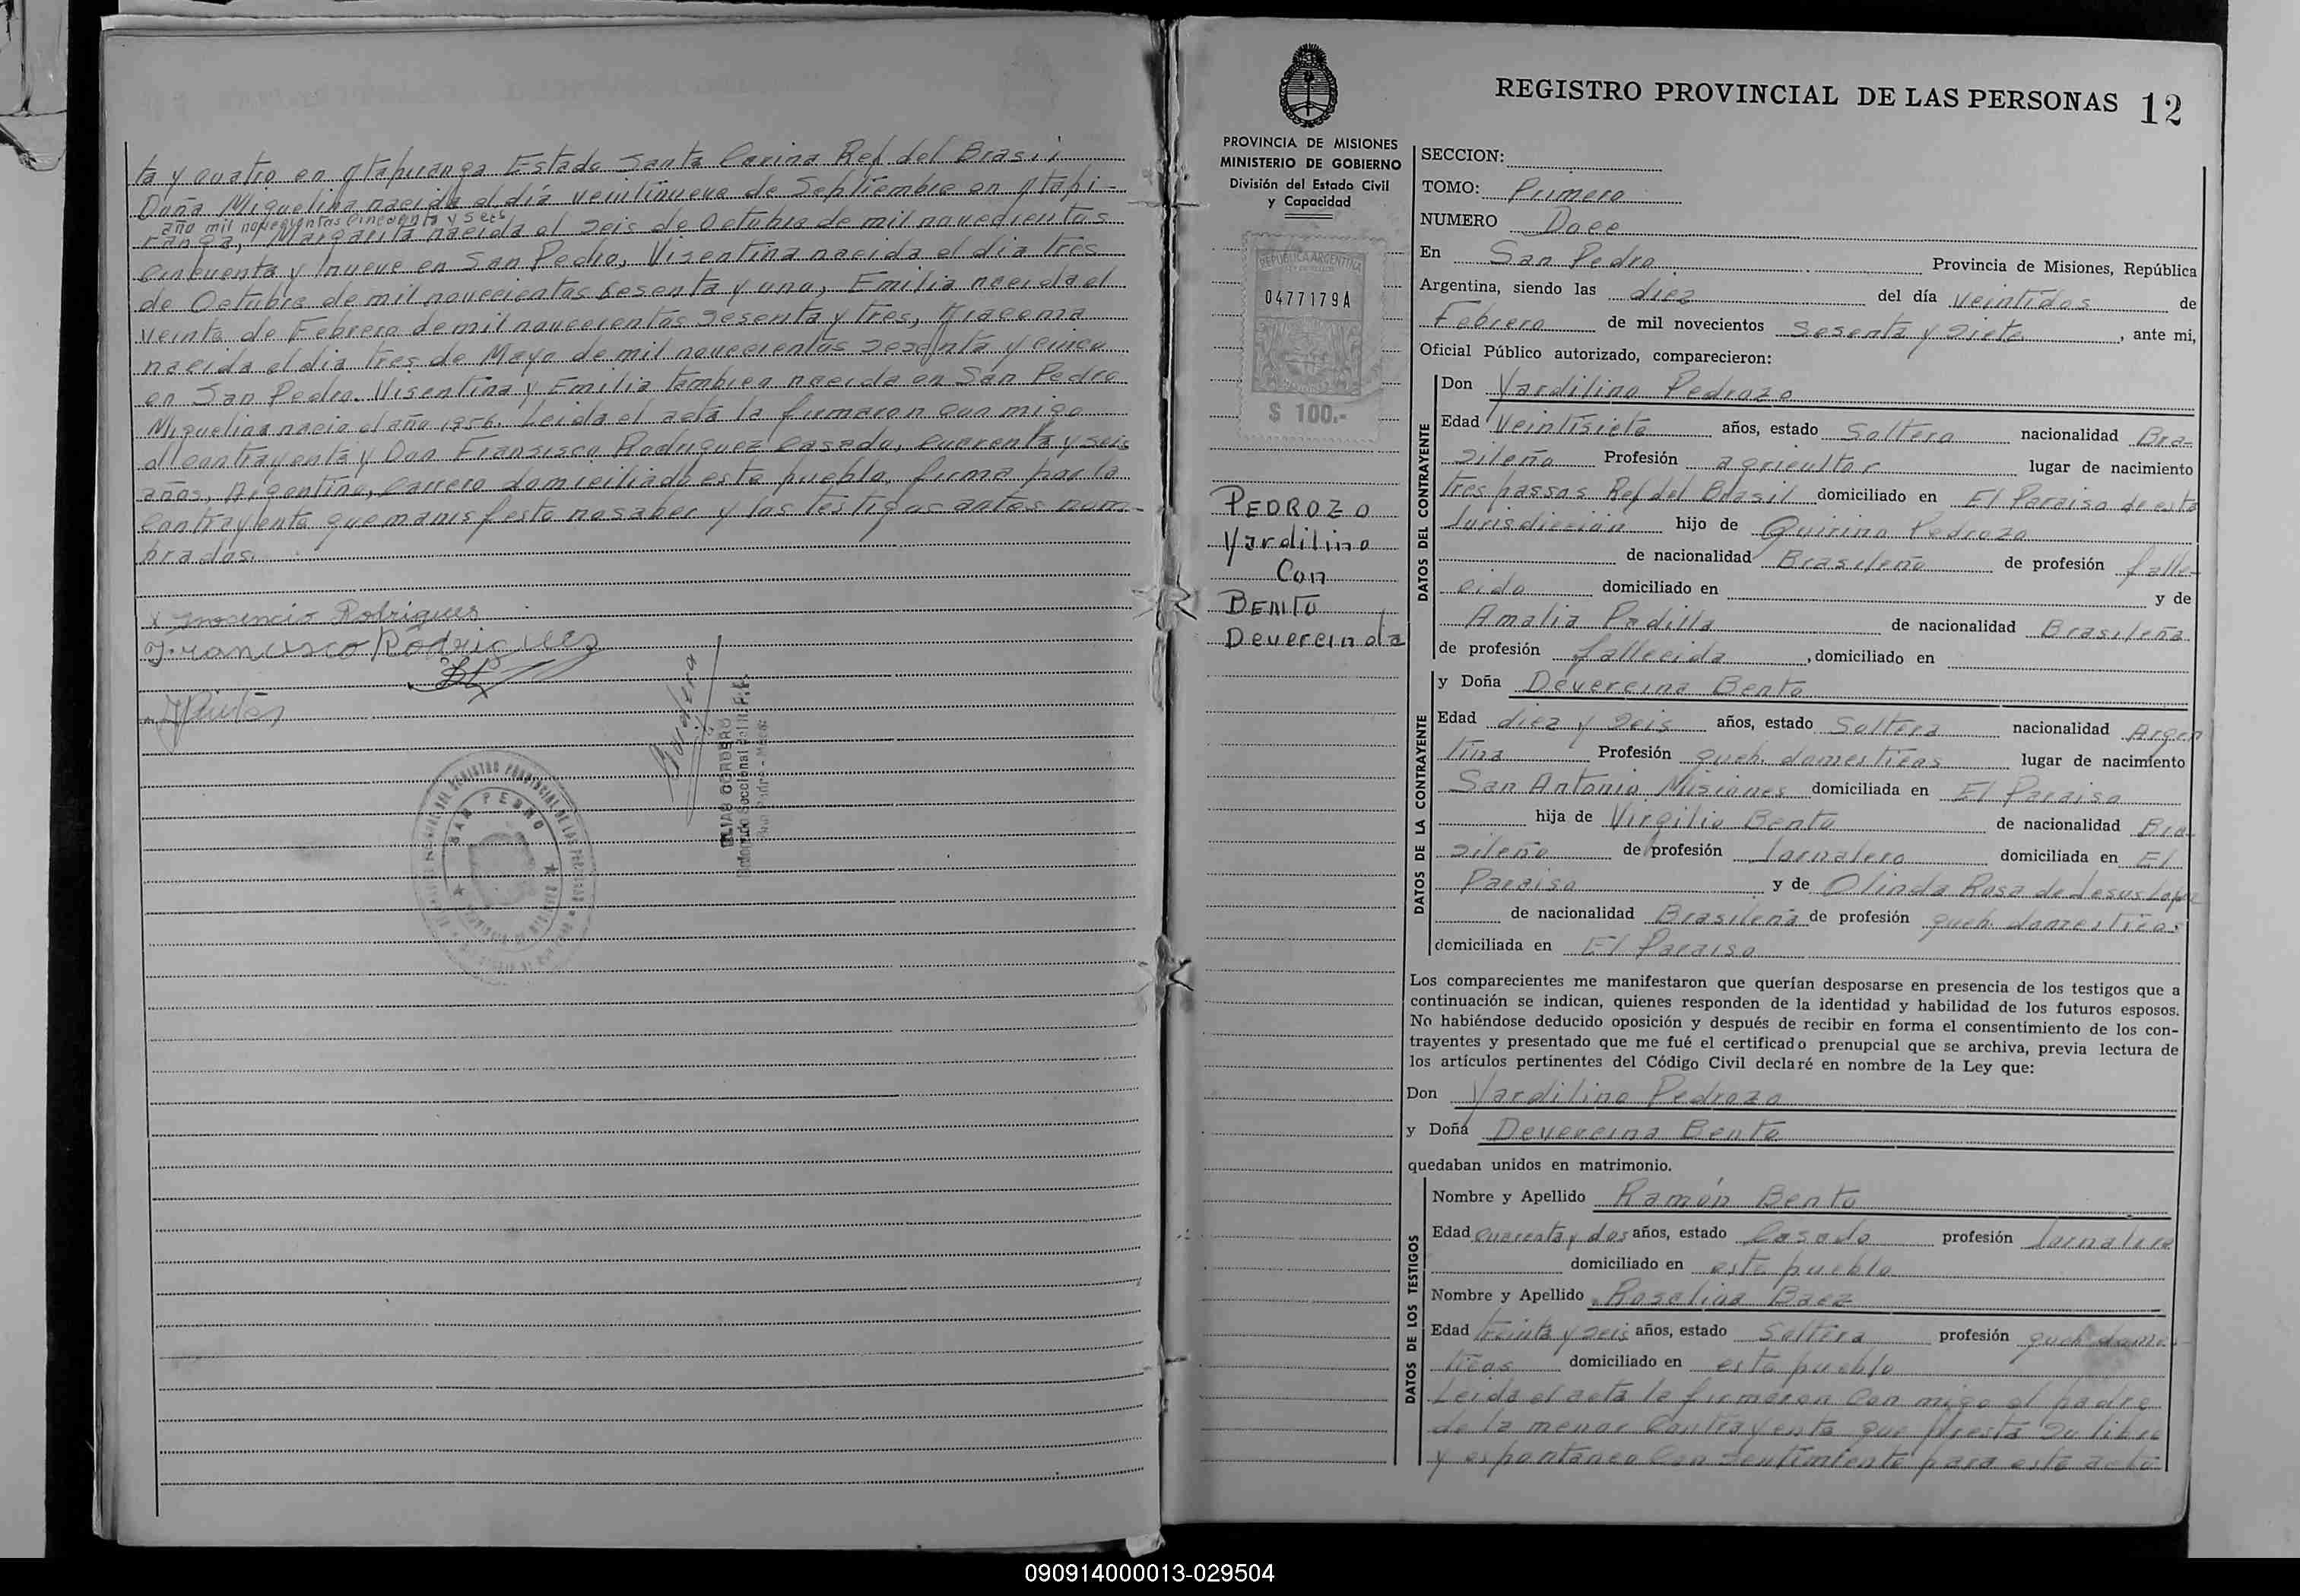 ta y cuatro en Itapiranga Estado Santa Carina Rep del Brasil
Doña Miguelina nacida el día veintinueve de Septiembre en Itapi-
año mil novecientos cincuenta y seis
ranga, Margarita nacida el seis de Octubre de mil novecientos
Cincuenta y nueve en San Pedro, Visentina nacida el día tres
de Octubre de mil novecientos sesenta y uno, Emilia nacida el
veinte de Febrero de mil novecientos sesenta y tres,
nacida el día tres de Mayo de mil novecientos sesenta y cinco
en San Pedro. Visentina y Emilia tambien nacida en San Pedro
Miguelina nacio el año 1956. Leida el acta la firmaron con migo
el contrayente y Don Fransisco Rodriguez Casado, cuarenta y seis
años, Argentino, Carrero domiciliado este pueblo, firma por la
Contrayente que manisfesto no saber y los testigos antes nom-
brados.
x Inocencio Rodrigues
Francisco Rodriguez
SAN PEDRO
ELIAS CORDERO
REGISTRO PROVINCIAL DE LAS PERSONAS 12
PROVINCIA DE MISIONES
MINISTERIO DE GOBIERNO
División del Estado Civil
y Capacidad
REPUBLICA ARGENTINA
0477179A
$ 100.-
PEDROZO
Yardilino
Con
BENTO
Devereinda
SECCION:
TOMO: Primero
NUMERO Doce
En San Pedro Provincia de Misiones, República
Argentina, siendo las diez del día veintidos de
Febrero de mil novecientos Sesenta y siete, ante mi,
Oficial Público autorizado, comparecieron:
DATOS DEL CONTRAYENTE
Don Yardilino Pedrozo
Edad Veintisiete años, estado Soltero nacionalidad Bra-
sileño Profesión agricultor lugar de nacimiento
Tres passos Rep del Brasil domiciliado en El Paraiso de esta
Jurisdiccion hijo de Quirino Pedrozo
de nacionalidad Brasileño de profesión falle-
cido domiciliado en y de
Amalia Padilla de nacionalidad Brasileña
de profesión fallecida, domiciliado en
DATOS DE LA CONTRAYENTE
y Doña Devereina Bento
Edad diez y seis años, estado Soltera nacionalidad Argen
tina Profesión queh. domesticos lugar de nacimiento
San Antonio Misiones domiciliada en El Paraiso
hija de Virgilio Bento de nacionalidad Bra-
sileño de profesión Jornalero domiciliada en El
Paraiso y de Olinda Rosa de Jesus Lopez
de nacionalidad Brasileña de profesión queh domesticos
domiciliada en El Paraiso
Los comparecientes me manifestaron que querían desposarse en presencia de los testigos que a
continuación se indican, quienes responden de la identidad y habilidad de los futuros esposos.
No habiéndose deducido oposición y después de recibir en forma el consentimiento de los con-
trayentes y presentado que me fué el certificado prenupcial que se archiva, previa lectura de
los artículos pertinentes del Código Civil declaré en nombre de la Ley que:
Don Yardilino Pedrozo
y Doña Devereina Bento
quedaban unidos en matrimonio.
DATOS DE LOS TESTIGOS
Nombre y Apellido Ramón Bento
Edad cuarenta y dos años, estado Casado profesión Jornalero
domiciliado en este pueblo
Nombre y Apellido Rosalina Baez
Edad treinta y seis años, estado Soltera profesión queh domes-
ticos domiciliado en este pueblo
Leida el acta la firmaron con migo el padre
de la menor Contrayente que presta su libre
y espontaneo Con sentimiento para este acto
090914000013-029504